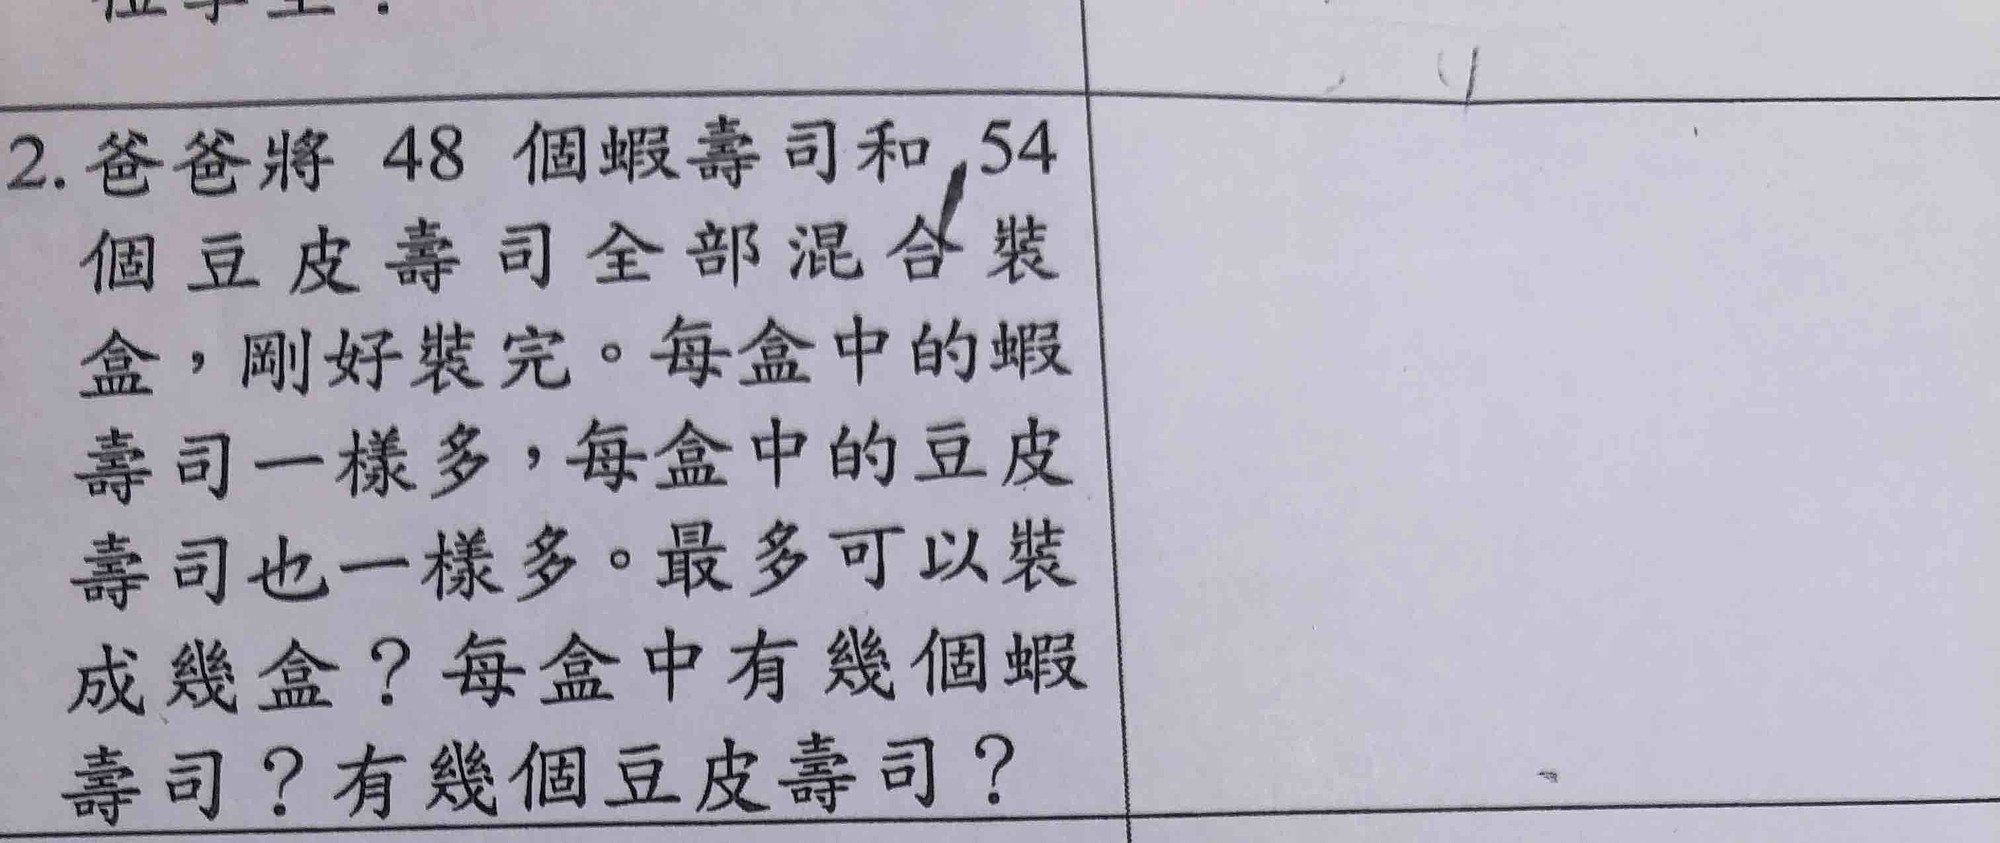 2. 爸爸將 48 個蝦壽司和 54
個豆皮壽司全部混合裝
盒，剛好裝完。每盒中的蝦
壽司一樣多，每盒中的豆皮
壽司也一樣多。最多可以裝
成幾盒？每盒中有幾個蝦
壽司？有幾個豆皮壽司？